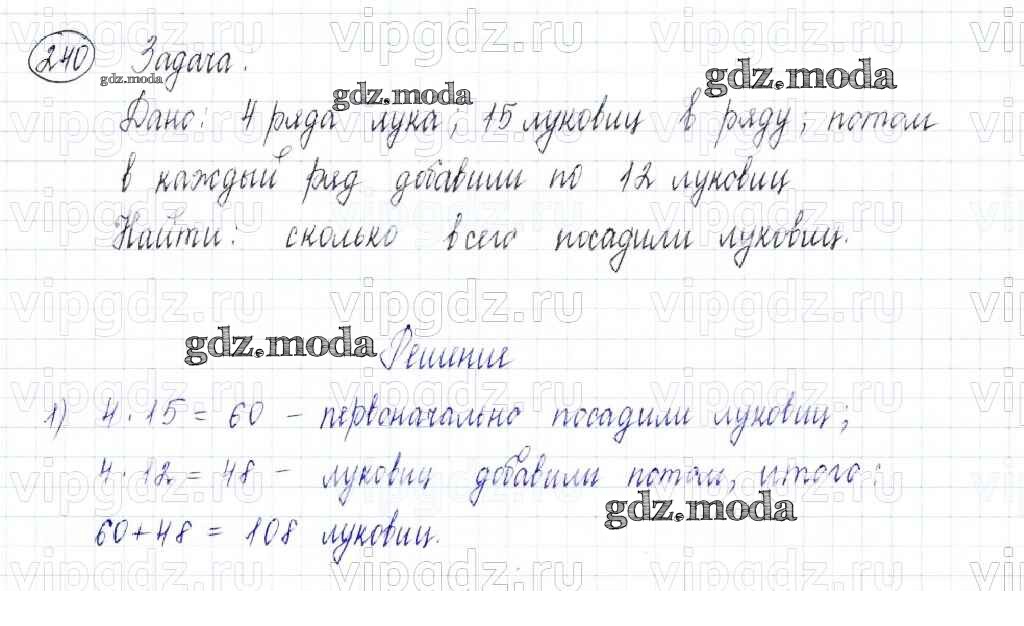 vipgdz.ru vipgdz.ru vipgdz.ru
240 Задача.
gdz.moda gdz.moda gdz.moda
Дано: 4 ряда лука; 15 луковиц в ряду; потом
vipgdz.ru vipgdz.ru vipgdz.ru
в каждый ряд добавили по 12 луковиц
vipgdz.ru vipgdz.ru vipgdz.ru
Найти: сколько всего посадили луковиц.
vipgdz.ru vipgdz.ru vipgdz.ru
gdz.moda Решение
vipgdz.ru vipgdz.ru vipgdz.ru
1) 4 · 15 = 60 – первоначально посадили луковиц;
4 · 12 = 48 – луковиц добавили потом, итого:
vipgdz.ru vipgdz.ru vipgdz.ru
gdz.moda
60 + 48 = 108 луковиц.
vipgdz.ru vipgdz.ru vipgdz.ru